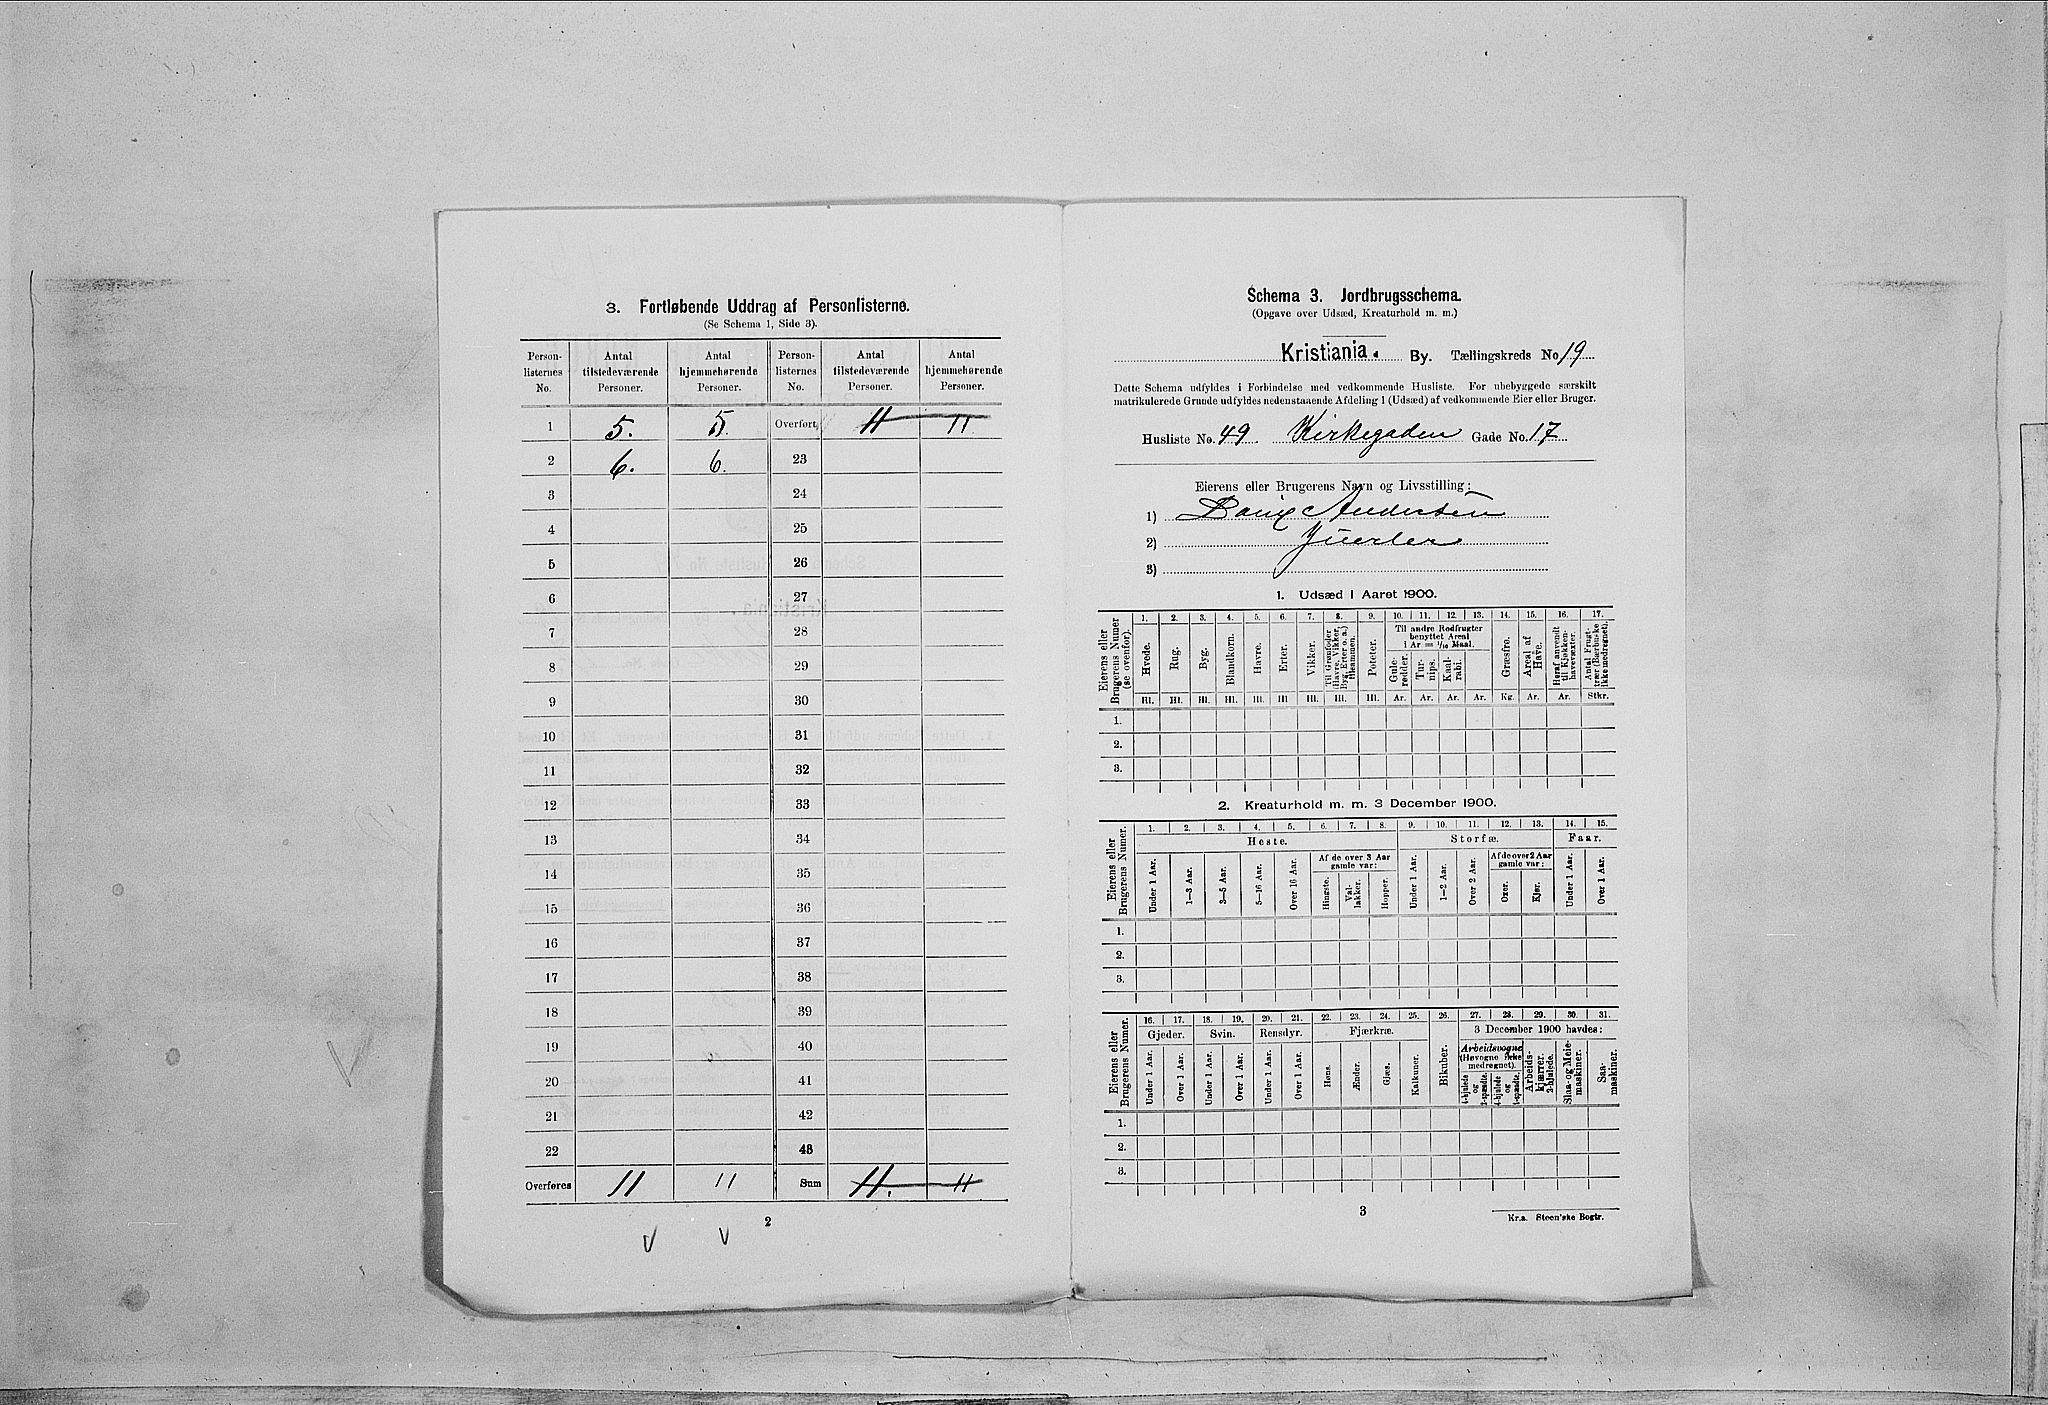 3. Fortløbende Uddrag af Personlisterne.
(Se Schema 1, Side 3).
Person-listernes No. Antal tilstedeværende Personer. Antal hjemmehørende Personer. Person-listernes No. Antal tilstedeværende Personer. Antal hjemmehørende Personer.
1 5. 5. Overført 11 11
2 6. 6. 23
3 24
4 25
5 26
6 27
7 28
8 29
9 30
10 31
11 32
12 33
13 34
14 35
15 36
16 37
17 38
18 39
19 40
20 41
21 42
22 43
Overføres 11 11 Sum 11. 11
2
Schema 3. Jordbrugsschema.
(Opgave over Udsæd, Kreaturhold m. m.)
Kristiania. By. Tællingskreds No 19
Dette Schema udfyldes i Forbindelse med vedkommende Husliste. For ubebyggede særskilt
matrikulerede Grunde udfyldes nedenstaaende Afdeling 1 (Udsæd) af vedkommende Eier eller Bruger.
Husliste No. 49. Kirkegaden Gade No. 17
Eierens eller Brugerens Navn og Livsstilling:
1) Andersen
2)
3)
1. Udsæd i Aaret 1900.
Eierens eller Brugerens Numer (se ovenfor).
1. 2. 3. 4. 5. 6. 7. 8. 9. 10. 11. 12. 13. 14. 15. 16. 17.
Hvede. Rug. Byg. Blandkorn. Havre. Erter. Vikker. Til Grønfoder (Havre, Vikker, Byg, Erter o. a.) tilsammen. Poteter.
Til andre Rodfrugter benyttet Areal i Ar = 1/10 Maal.
Gule-rødder. Tur-nips. Kaal-rabi. Græsfrø. Areal af Have. Heraf anvendt til Kjøkken-havevæxter. Antal Frugt-trær (Bærbuske ikke medregnet).
Hl. Hl. Hl. Hl. Hl. Hl. Hl. Hl. Hl. Ar. Ar. Ar. Ar. Kg. Ar. Ar. Stkr.
1.
2.
3.
2. Kreaturhold m. m. 3 December 1900.
Eierens eller Brugerens Numer.
1. 2. 3. 4. 5. 6. 7. 8. 9. 10. 11. 12. 13. 14. 15.
Heste. Storfæ. Faar.
Under 1 Aar. 1—3 Aar. 3—5 Aar. 5—16 Aar. Over 16 Aar. Af de over 3 Aar gamle var: Hingste. Val-lakker. Hopper. Under 1 Aar. 1—2 Aar. Over 2 Aar. Af de over 2 Aar gamle var: Oxer. Kjør. Under 1 Aar. Over 1 Aar.
1.
2.
3.
Eierens eller Brugerens Numer.
16. 17. 18. 19. 20. 21. 22. 23. 24. 25. 26. 27. 28. 29. 30. 31.
Gjeder. Svin. Rensdyr. Fjærkræ. Bikuber. 3 December 1900 havdes:
Under 1 Aar. Over 1 Aar. Under 1 Aar. Over 1 Aar. Under 1 Aar. Over 1 Aar. Høns. Ænder. Gjæs. Kalkuner. Arbeidsvogne (Høvogne ikke medregnet). 4-hjulede og 2-spændte. 4-hjulede og 1-spændte. Arbeids-kjærrer. 2-hjulede. Slaa- og Meie-maskiner. Saa-maskiner.
1.
2.
3.
3
Kr.a. Steen'ske Bogtr.